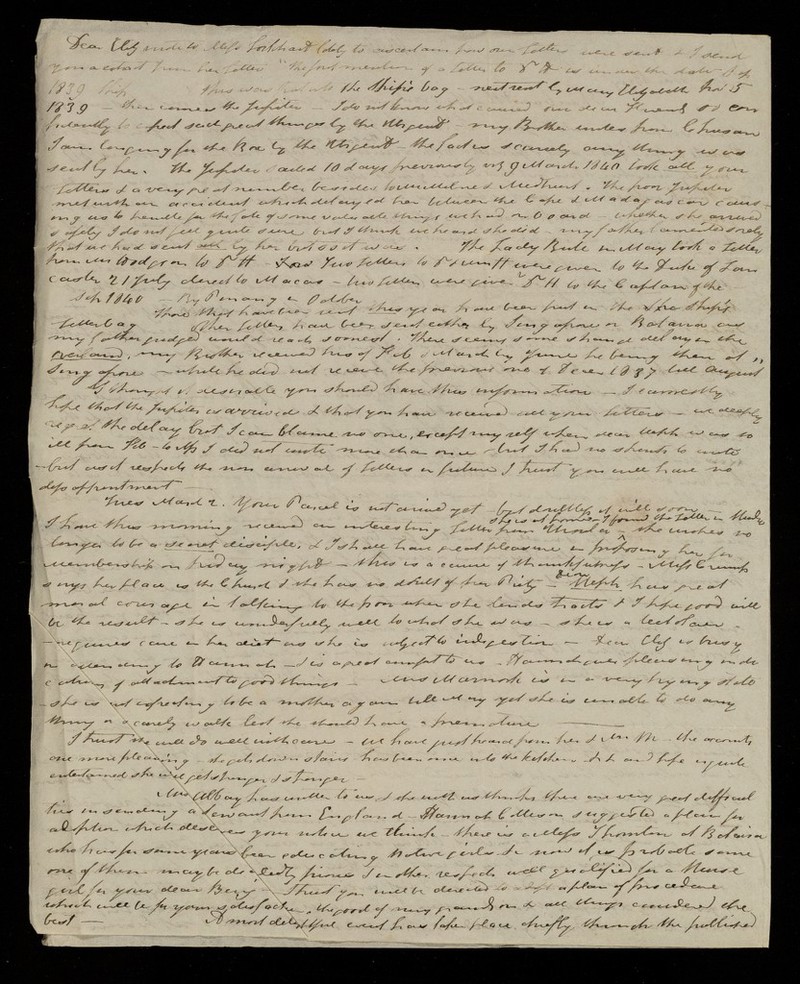 Dear Elizth wrote to Miss Lockhart lately to ascertain how our letters were sent & I send
you an extract from her letter "The first mention of a letter to Dr H is under the date of
1839 Ship This was put into the Ship's bag - next sent by Mary Elizabeth Nov 5
1839 - then comes the Jupiter - I do not know what caused our dear Friends so con
fidently to expect such great things by the Urgent - my Brother writes from Chusan
I am longing for the Box by the Urgent - the fact is scarcely any thing was
sent by her. The Jupiter sailed 10 days previously viz 9 March 1840 took all your
letters & a very great number besides to Medhurst. The poor Jupiter
met with an accident which delayed her between the Cape & Madagascar caus-
ing us to tremble for the fate of some valuable things we had on board - whether she arrived
safely I do not feel quite sure but I think we heard she did - my father lamented sorely
that we had sent all by her but so it was. The Lady Bute in May took a letter
from Mrs Hodgson to Dr H - Two letters to Dr were given to the Duke of Lan
caster 21 July direct to Macao - two letters were given Dr H to the Captain of the
Sept 1840 - By Penang in October
Those that have been sent this year have been put in the Ship's
letter bag Other letters have been sent either by Singapore or Batavia as
my father judged would reach soonest. There seems some strange delay in the
overland, my Brother received his of Feb & March by June he being then at
Singapore - while he did not receive the previous one of Decr 1837 till August"
I thought it desirable you should have this information - I earnestly
hope that the Jupiter is arrived & that you have received all your letters - we deeply
regret the delay but I can blame no one, except myself when dear Heph was so
ill from Feb - to I did not write more than once but I had no strength to write
- but as it respects the non arrival of letters in future I trust you will have no
disappointment -
Tues March 2. Your Parcel is not arrived yet - but doubtless it will soon
She is at home & I found the letter in
I have this morning received an interesting letter from she wishes no
longer to be a secret disciple, & I shall have great pleasure in proposing her for
membership on friday night - this is a cause of thankfulness - Miss Crump
says her place is the Church & she has no doubt of her Piety - Dear Heph has great
moral courage in talking to the poor when she lends tracts & I hope good will
be the result - she is wonderfully well to what she was - she is a teetotaler -
- requires care in her diet as she is subject to indigestion - Dear Eliz is busy
in attending to Hannah - is a great comfort to us - Hannah gives pleasing indi
cations of attachment to good things - Mrs is in a very trying state
- she is not expecting to be a mother again till May yet she is unable to do any
thing or scarcely walk lest she should have a premature
I trust she will do well with care - we have just heard from her & Mr M - the accounts
are more pleasing - she gets down stairs has been once into the kitchen & and hope is quite
entertained she will get stronger & stronger -
Mrs has written to us & she with us thinks there are very great difficul
ties in sending a servant from England - Hannah Collison suggested a plan for
adoption which deserves your notice we think - there is a Miss Thornton at Batavia
who has for some years been educating Native girls & now it is probable some
one of them may be decidedly pious & in other respects well qualified for a Nurse
girl for your dear Benj - I trust you will be directed to adopt a plan of procedure
which will be for your satisfaction, the good of my grandson & all things considered the
best - A most delightful event has taken place chiefly through the published